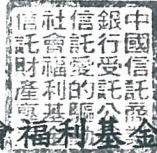 中國信託商
銀行受託公
信託愛的
社會福利基
信託財產專
會福利基金